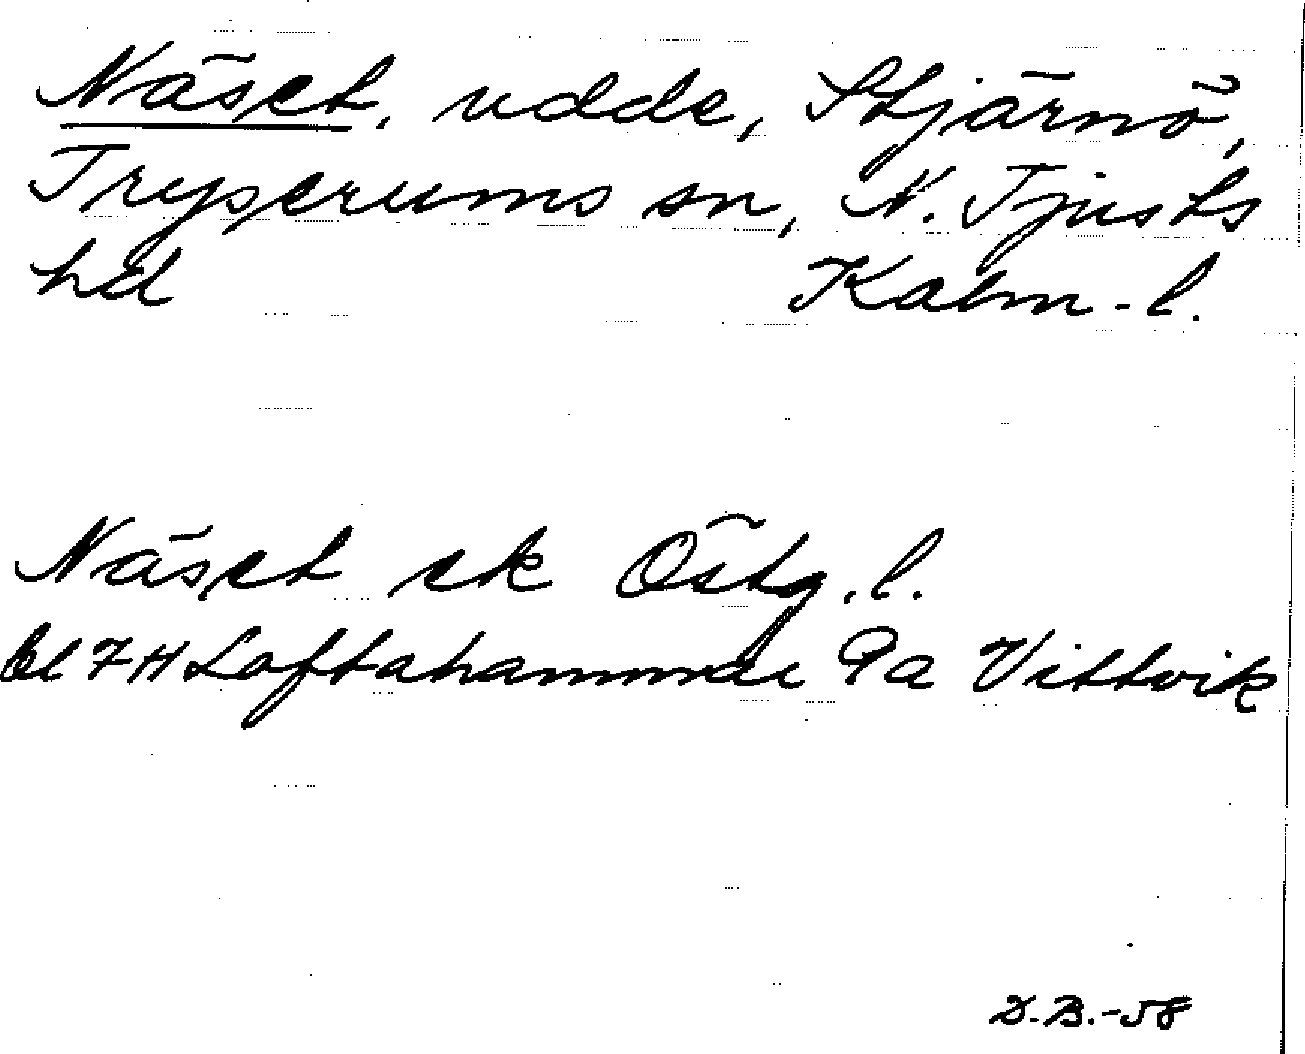 Näset, udde, Stjärnö,
Tryserums sn, N. Tjusts
hd Kalm.-l.
Näset ek Östg.l.
bl 7H Loftahammar 9a Vittvik
D.B.-58